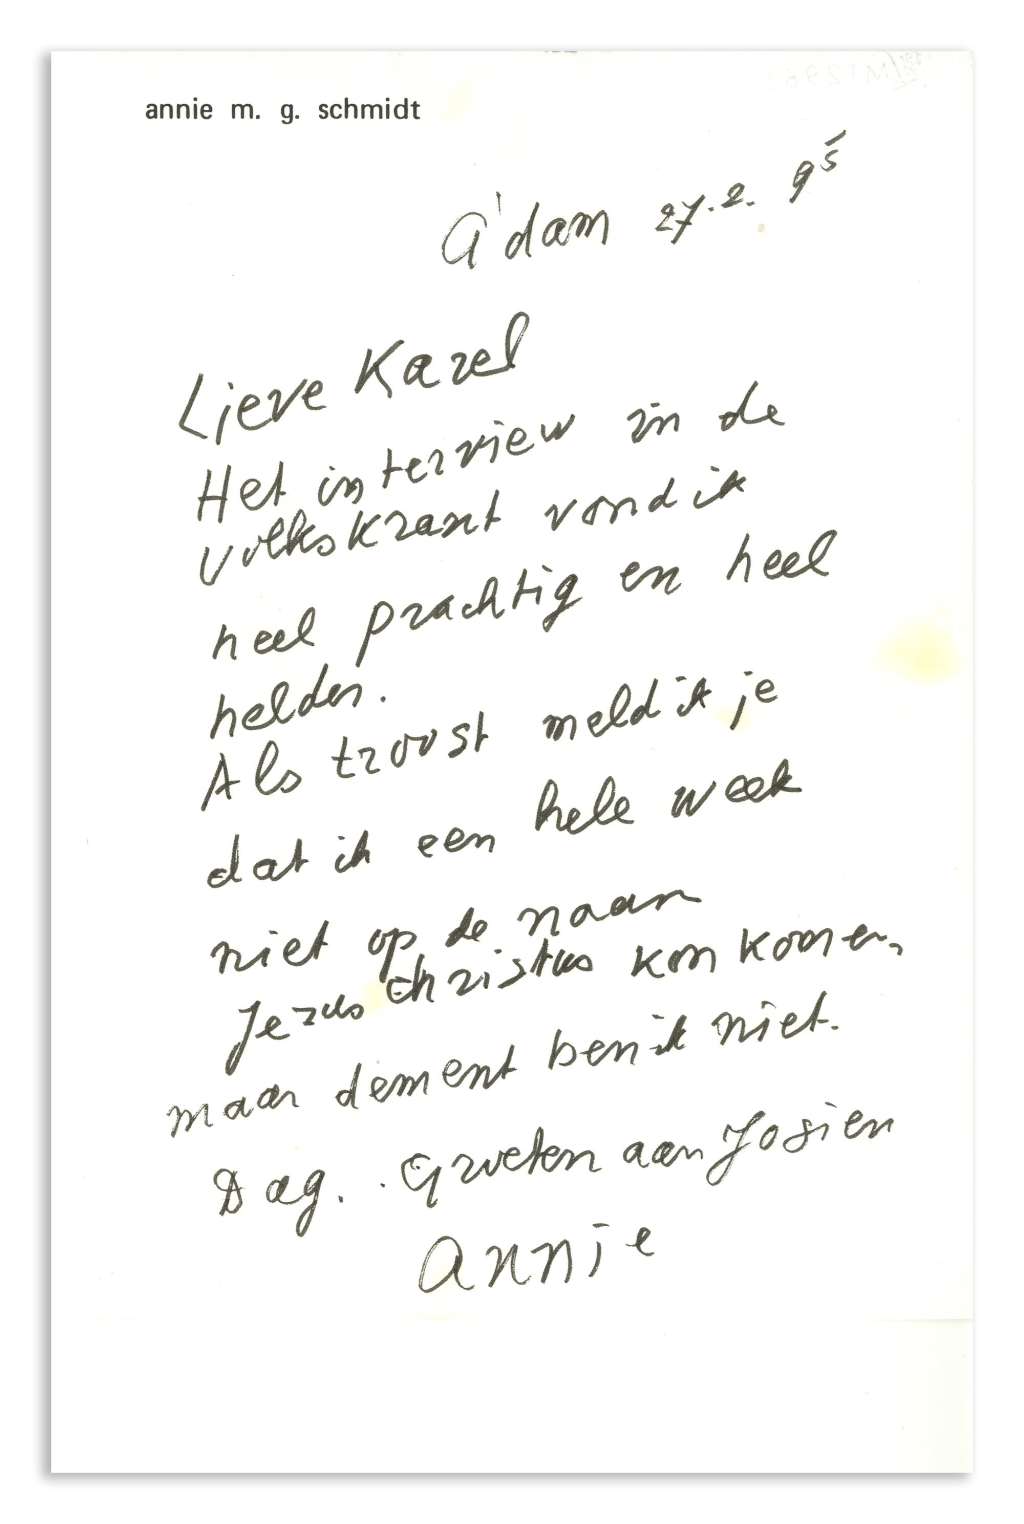 annie m. g. schmidt
A'dam 27.2.95
Lieve Karel
Het interview in de
volkskrant vond ik
heel prachtig en heel
helder.
Als troost meld ik je
dat ik een hele week
niet op de naam
Jezus Christus kon komen,
maar dement ben ik niet.
Dag. Groeten aan Josien
Annie